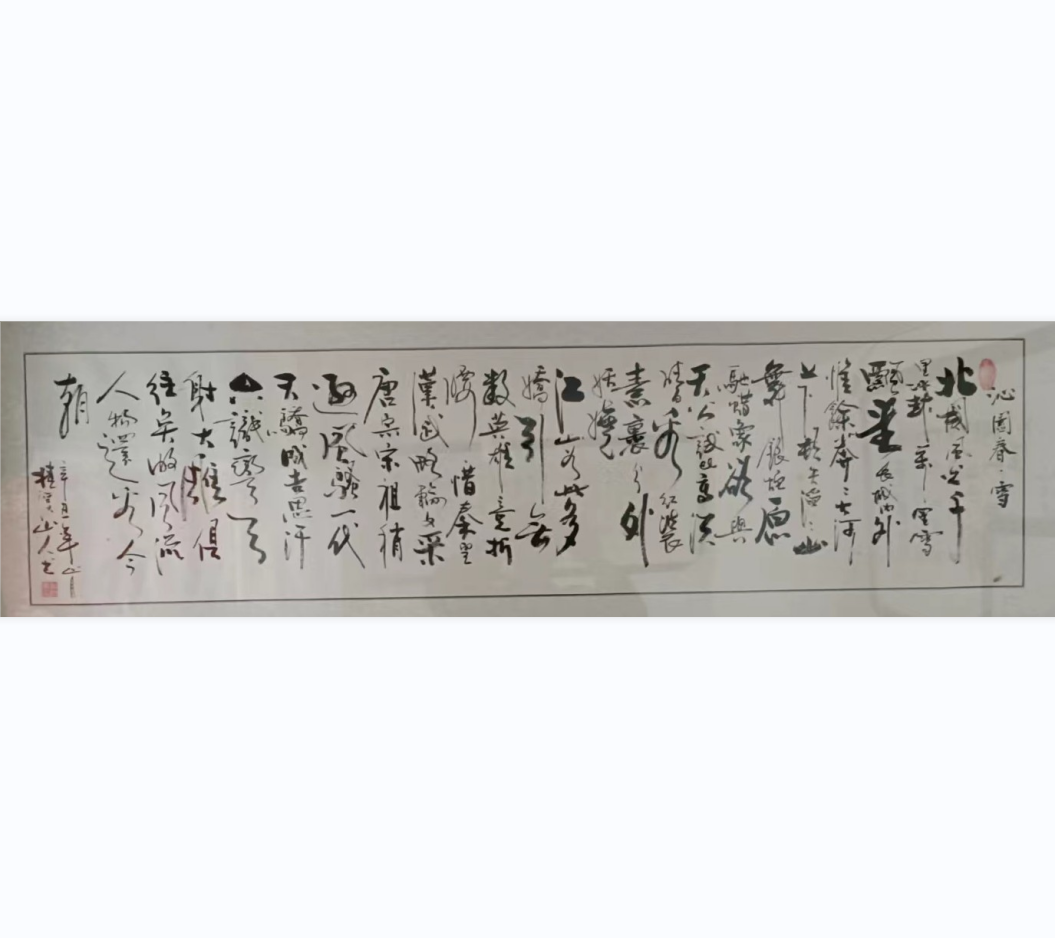 沁園春·雪
北國風光千
里冰封萬里雪
飄望長城內外
惟餘莽莽大河
上下頓失滔滔山
舞銀蛇原
馳蠟象欲與
天公試比高須
晴日看紅裝
素裹分外
妖嬈
江山如此多
嬌引無
數英雄競折
腰惜秦皇
漢武略輸文采
唐宗宋祖稍
遜風騷一代
天驕成吉思汗
只識彎弓
射大雕俱
往矣數風流
人物還看今
朝
辛丑年
山人書